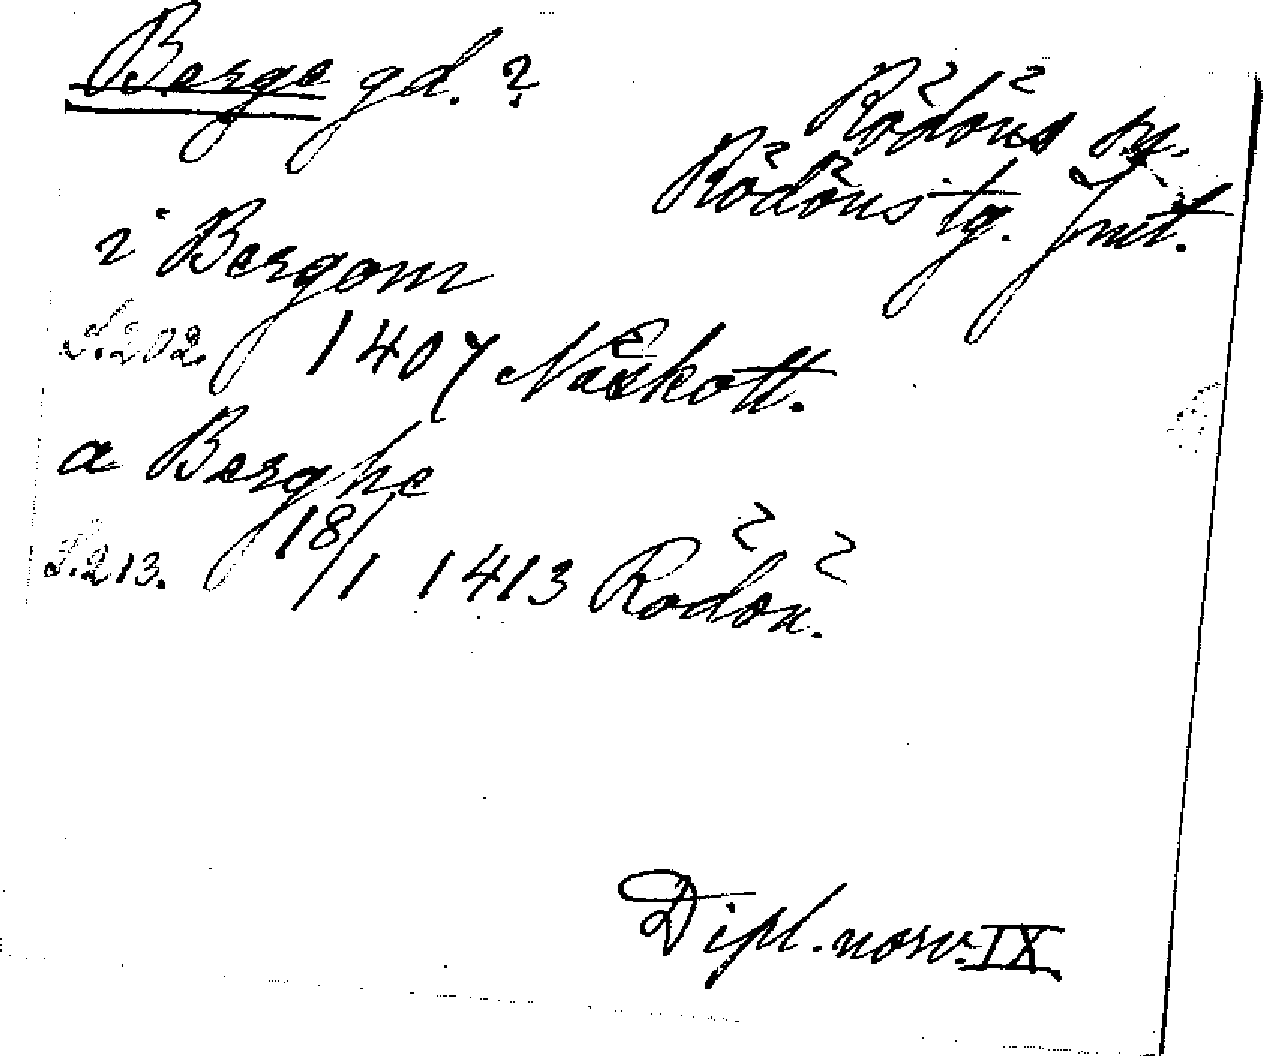 Berge gd. ?
Rödöns sn.
Rödöns tg. Jmt.
i Bergom
S. 202. 1407 Näskott.
a Berghe
S. 213. 18/1 1413 Rödön.
Dipl. norv. IX